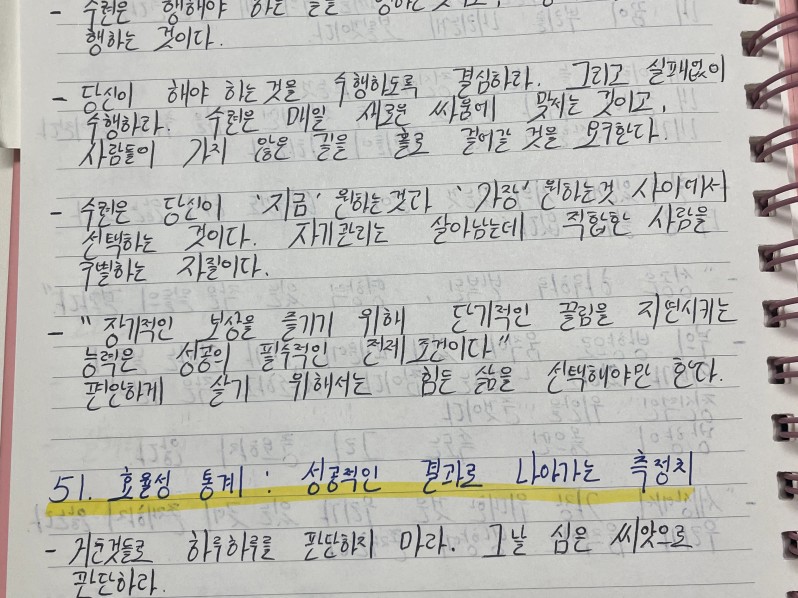 - 수련은 행해야 하는
행하는 것이다.
- 당신이 해야 하는 것을 수행하도록 결심하라. 그리고 실패없이
수행하라. 수련은 매일 새로운 싸움에 맞서는 것이고,
사람들이 가지 않은 길을 홀로 걸어갈 것을 요구한다.
- 수련은 당신이 '지금' 원하는 것과 '가장' 원하는것 사이에서
선택하는 것이다. 자기관리는 살아남는데 적합한 사람을
구별하는 자질이다.
- "장기적인 보상을 즐기기 위해 단기적인 끌림을 지연시키는
능력은 성공의 필수적인 전제 조건이다"
편안하게 살기 위해서는 힘든 삶을 선택해야만 한다.
51. 효율성 통계 : 성공적인 결과로 나아가는 측정치
- 거둔것들로 하루하루를 판단하지 마라. 그날 심은 씨앗으로
판단하라.